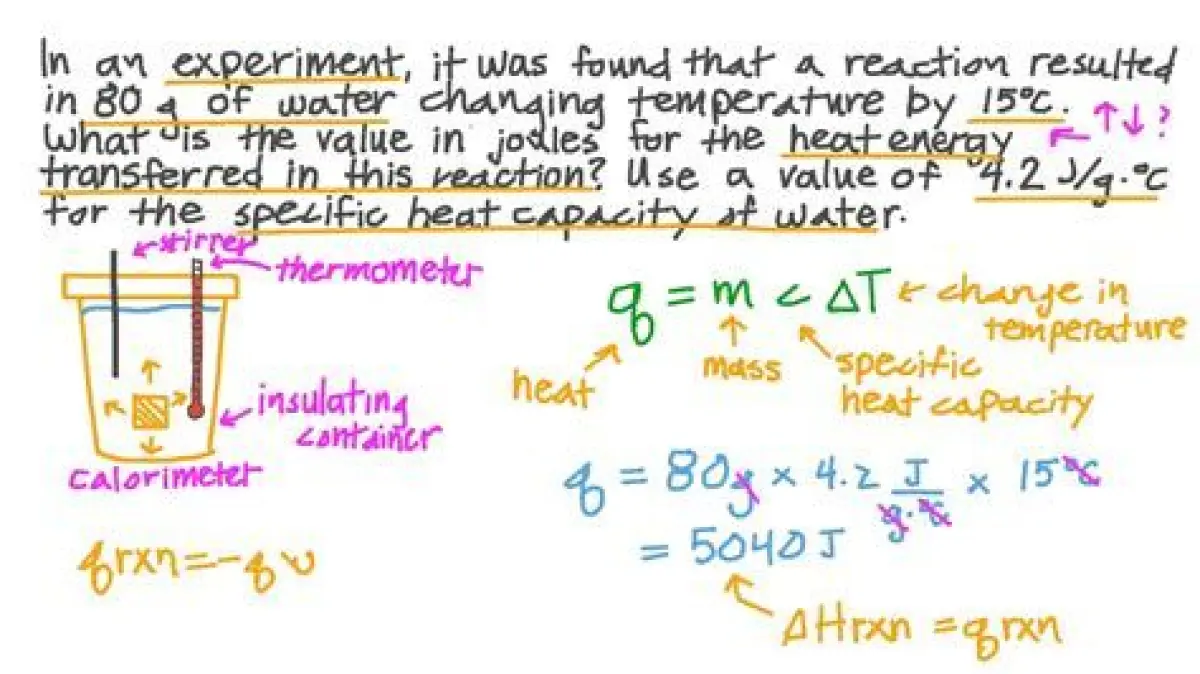 In an experiment, it was found that a reaction resulted
in 80 g of water changing temperature by 15°C.
↑↓?
What is the value in joules for the heat energy
transferred in this reaction? Use a value of 4.2 J/g·°C
for the specific heat capacity of water.
stirrer
thermometer
q = m c ΔT
change in
temperature
heat
mass
specific
heat capacity
insulating
container
calorimeter
q = 80g × 4.2 J/g·°C × 15°C
= 5040 J
qrxn = -q
ΔHrxn = qrxn